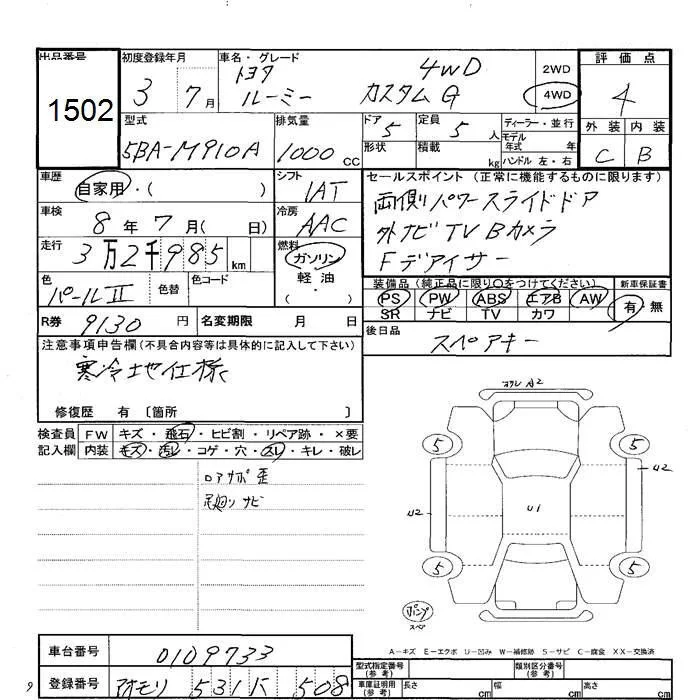 出品番号 初度登録年月 車名・グレード 評価点
1502 3 7月 トヨタ 4WD 2WD 4
ルーミー カスタムG 4WD
型式 排気量 ドア 5 定員 5人 ディーラー・並行 外装 内装
5BA-M910A 1000cc 形状 積載 kg モデル年式 年 C B
ハンドル 左・右
車歴 シフト セールスポイント(正常に機能するものに限ります)
自家用・( ) IAT 両側パワースライドドア
車検 冷房 外ナビTVBカメラ
8年7月( 日) AAC Fデアイサー
走行 燃料
3万2千985km ガソリン
軽油
・( )
色 色替 色コード 装備品(純正品に限り○をつけてください) 新車保証書
パールII PS PW ABS エアB AW 有・無
SR ナビ TV カワ
R券 9130円 名変期限 月 日 後日品
スペアキー
注意事項申告欄(不具合内容等は具体的に記入して下さい)
寒冷地仕様
修復歴 有〔箇所 〕
検査員 FW キズ・飛石・ヒビ割・リペア跡・×要
記入欄 内装 キズ・汚レ・コゲ・穴・スレ・キレ・破レ
ロアサポ歪
足廻りサビ
A2
5 5
U2
U2 U1
5 5
パンプ
スペ
A-キズ E-エクボ U-凹み W-補修跡 S-サビ C-腐食 XX-交換済
車台番号 0109733 型式指定番号(参考) 類別区分番号(参考)
登録番号 アオモリ 531 508 車庫証明用(参考) 長さ cm 幅 cm 高さ cm
9